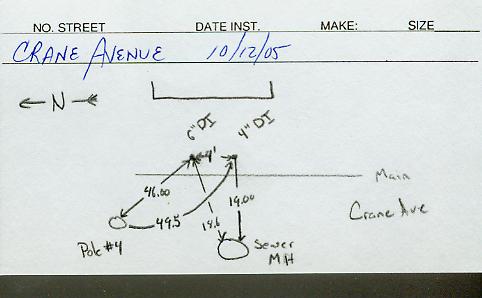 NO. STREET DATE INST. MAKE: SIZE
CRANE AVENUE 10/12/05
N
6" DI 4" DI
4'
Main
46.00
49.5
18.6
19.00
Crane Ave
Pole #4
Sewer
MH